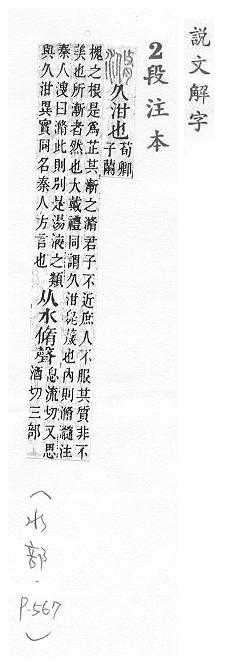 說文解字
2段注本
滫 久泔也 荀卿子蘭
槐之根是爲芷其漸之滫君子不近庶人不服其質非不
美也所漸者然也大戴禮同謂久泔也內則滫瀡注
秦人溲曰滫此則別是湯液之類
與久泔異實同名秦人方言也 从水脩聲 息流切又思酒切三部
(水部. P.567)